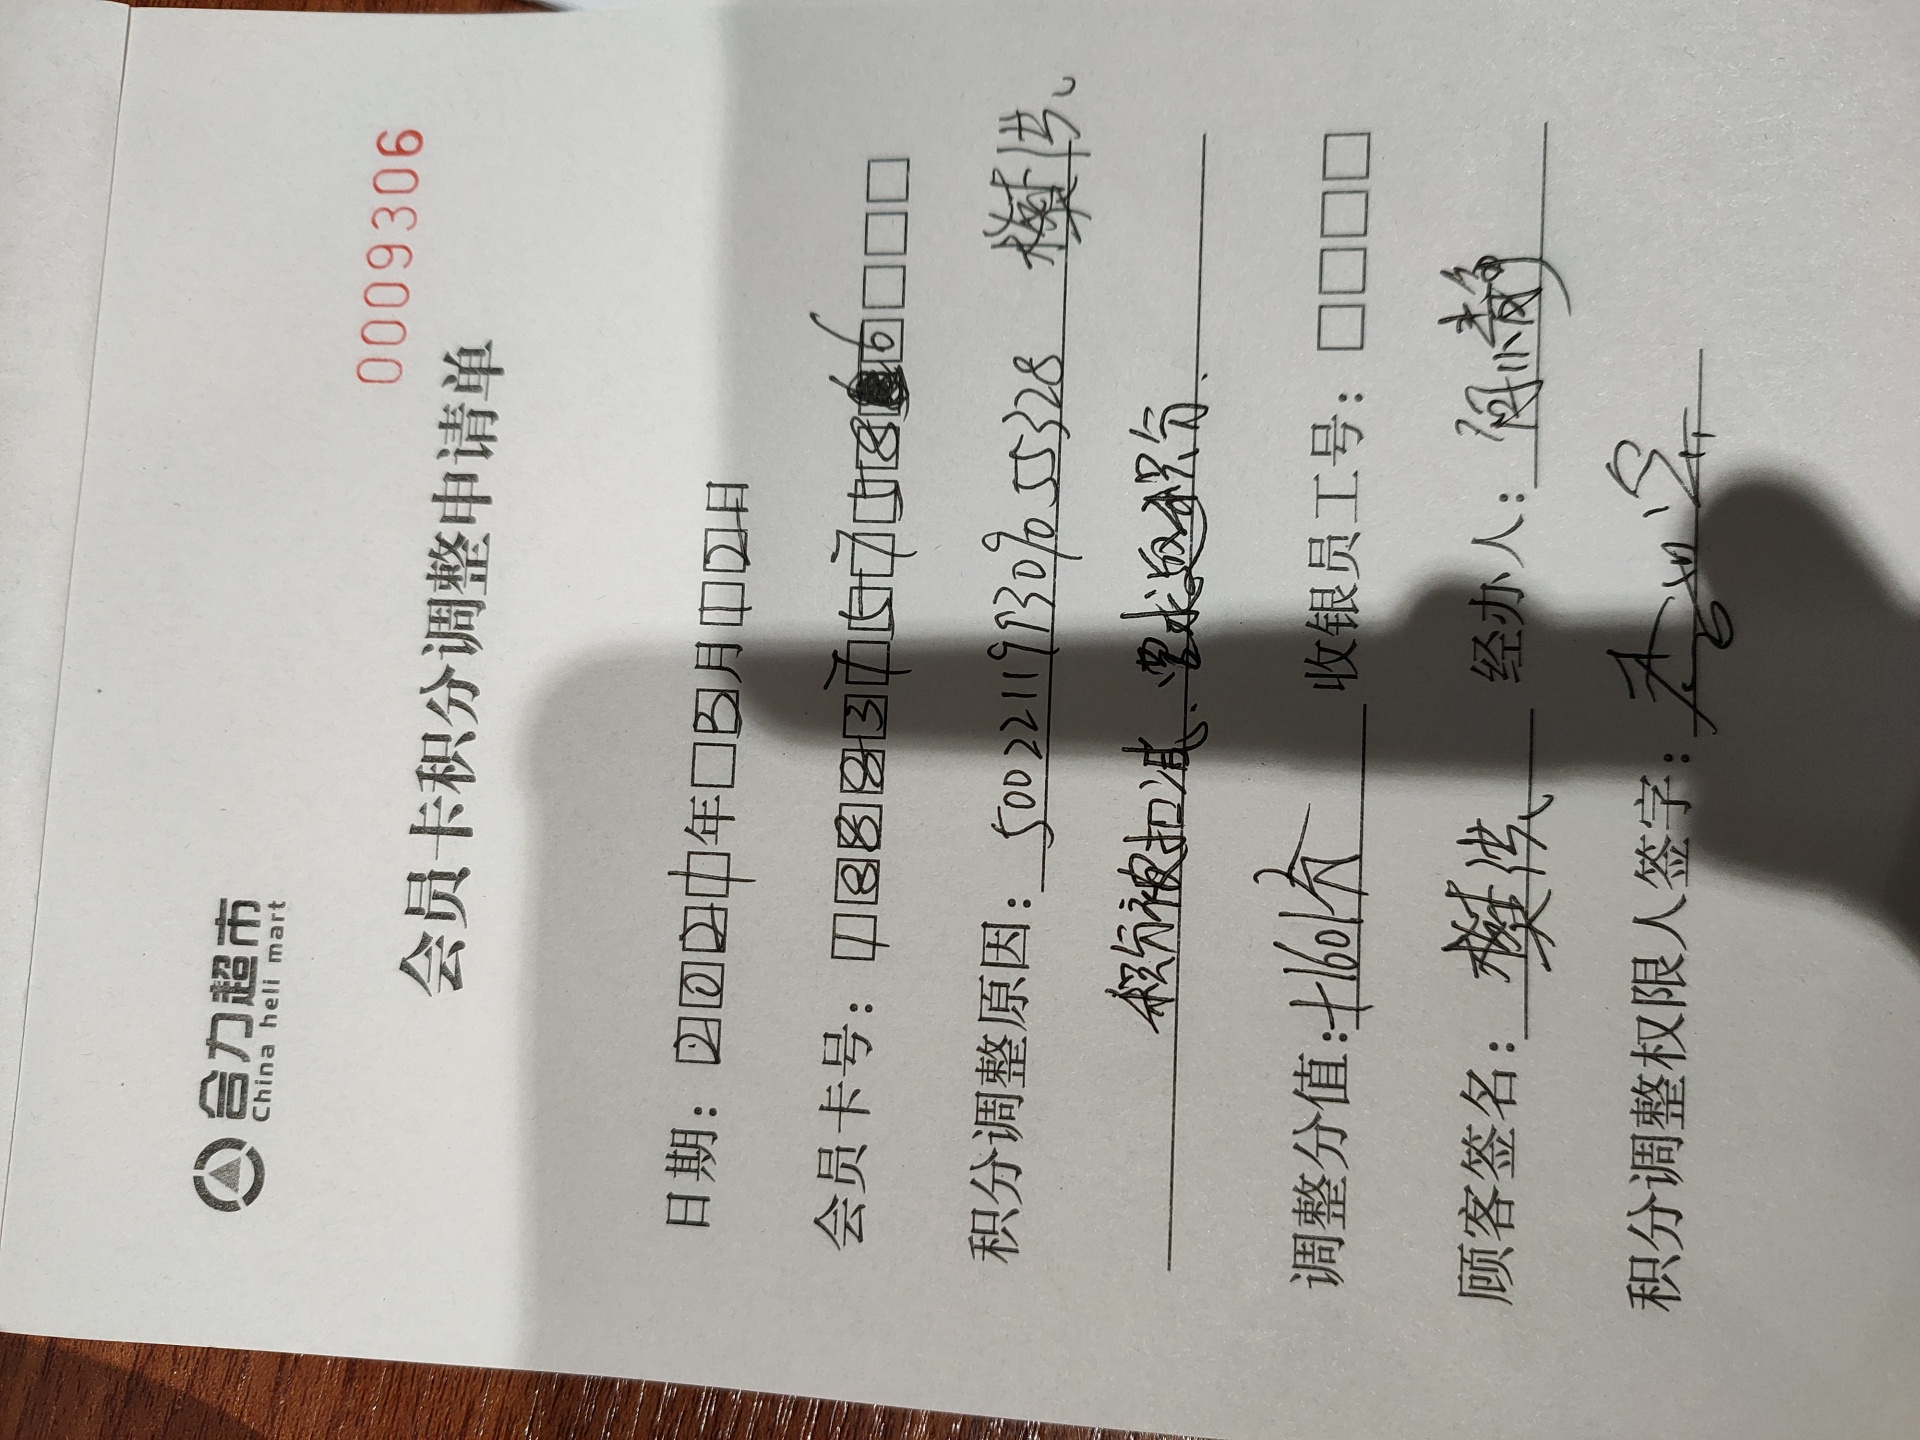 合力超市
China heli mart
0009306
会员卡积分调整申请单
日期：2024年□3月12日
会员卡号：1888375786□□□
积分调整原因：樊洪
积分被扣减、要求返积分.
调整分值：+1601分 收银员工号：□□□□
顾客签名：樊洪 经办人：
积分调整权限人签字：